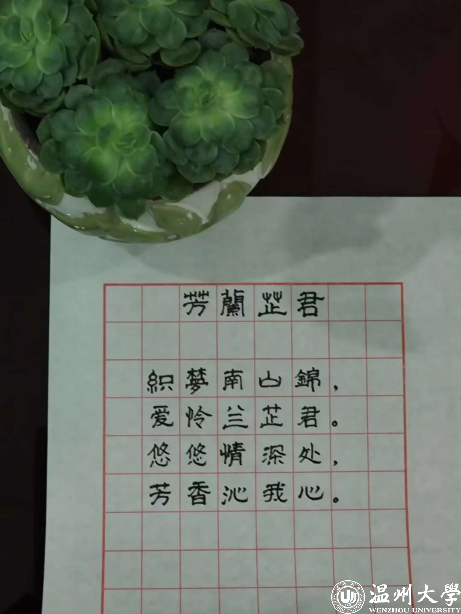 芳蘭芷君
織夢南山錦，
爱怜兰芷君。
悠悠情深处，
芳香沁我心。
温州大學
WENZHOU UNIVERSITY